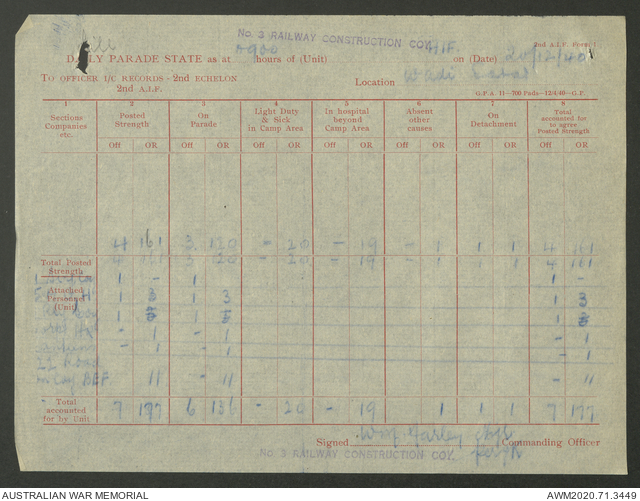 No. 3 RAILWAY CONSTRUCTION COY. AIF.
2nd A.I.F. Form 1
DAILY PARADE STATE as at 0900 hours of (Unit) on (Date) 20/12/40
TO OFFICER I/C RECORDS - 2ND ECHELON
2ND A.I.F.
Location Wadi
G.P.A. 11—700 Pads—12/4/40—G.P.
1 2 3 4 5 6 7 8
Sections Companies etc. Posted Strength On Parade Light Duty & Sick in Camp Area In hospital beyond Camp Area Absent other causes On Detachment Total accounted for to agree Posted Strength
Off OR Off OR Off OR Off OR Off OR Off OR Off OR
4 161 3 120 - 20 - 19 - 1 1 1 4 161
Total Posted Strength 4 161 3 120 - 20 - 19 - 1 1 1 4 161
1 - 1 1 -
Attached Personnel (Unit) 1 3 1 3 1 3
1 1 1
- 1 - 1 - 1
- 1 - 1 - 1
Coy BEF 11 - 11 - 11
Total accounted for by Unit 7 177 6 136 - 20 - 19 1 1 1 7 177
Signed Commanding Officer
No. 3 RAILWAY CONSTRUCTION COY.
AUSTRALIAN WAR MEMORIAL
AWM2020.71.3449